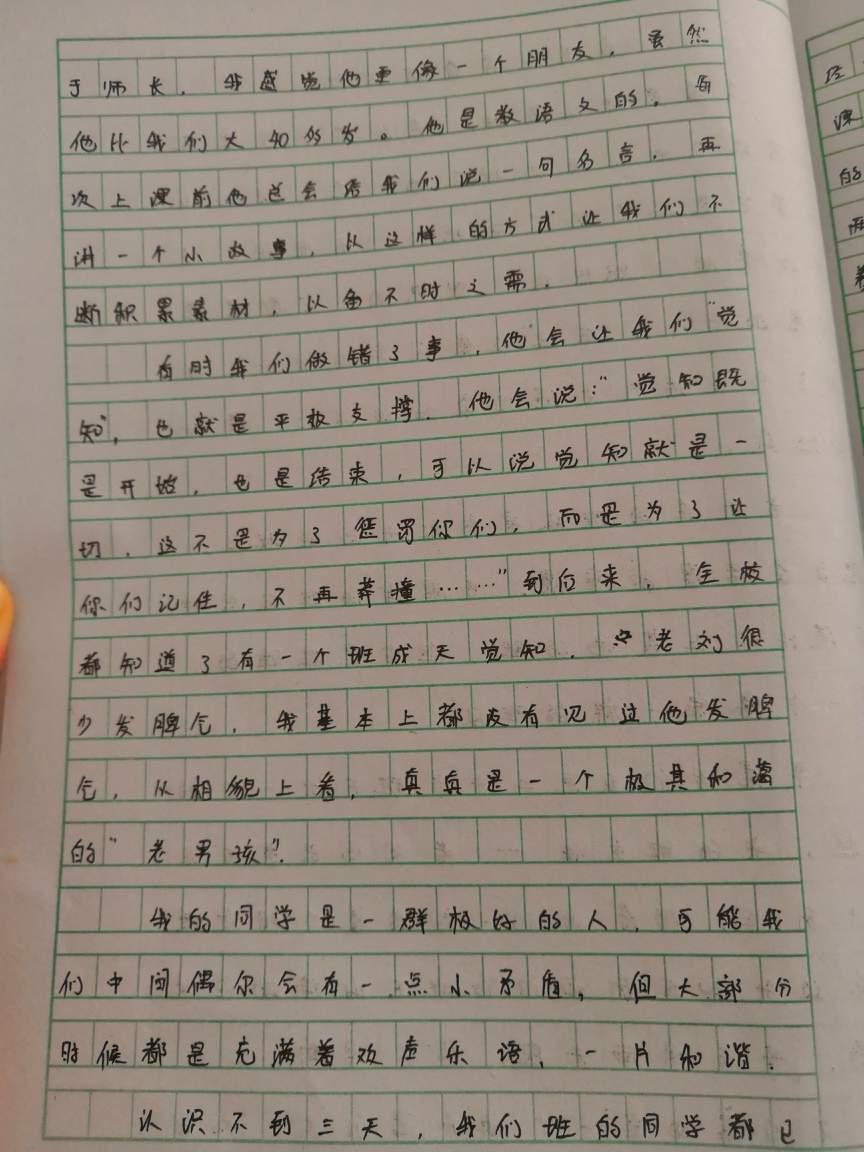 于师长，我感觉他更像一个朋友，虽然
他比我们大40多岁。他是教语文的，每
次上课前他总会给我们说一句名言，再
讲一个小故事，以这样的方式让我们不
断积累素材，以备不时之需。
有时我们做错了事，他会让我们“觉
知”，也就是平板支撑。他会说：“觉知既
是开始，也是结束，可以说觉知就是一
切，这不是为了惩罚你们，而是为了让
你们记住，不再莽撞……”到后来，全校
都知道了有一个班成天觉知，老刘很
少发脾气，我基本上都没有见过他发脾
气，从相貌上看，真真是一个极其和蔼
的“老男孩”。
我的同学是一群极好的人，可能我
们中间偶尔会有一点小矛盾，但大部分
时候都是充满着欢声乐语，一片和谐。
认识不到三天，我们班的同学都已
应
课
的
两